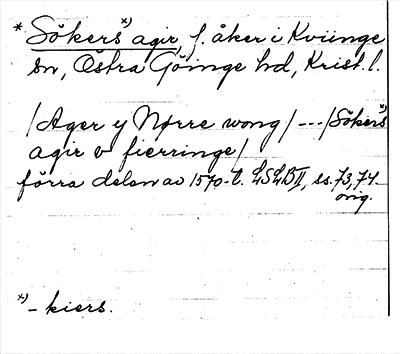 * Sökers*) agir, f. åker i Kviinge
sn, Östra Göinge hd, Krist. l.
/Ager y Nørre wong/ --- /Sökers*)
agir v fierringe/
förra delen av 1570-t. LSLB II, ss. 73, 74
orig.
*) - kiers.